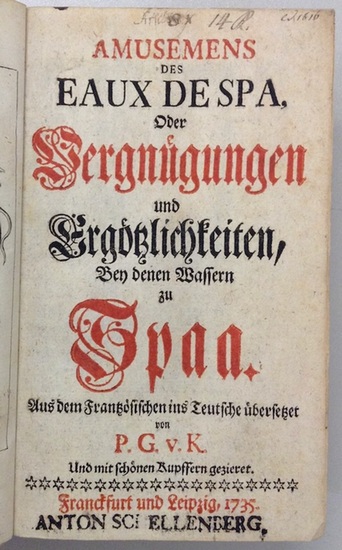 14
AMUSEMENS
DES
EAUX DE SPA,
Oder
Vergnügungen
und
Ergötzlichkeiten,
Bey denen Wassern
zu
Spaa.
Aus dem Frantzösischen ins Teutsche übersetzet
von
P. G. v. K.
Und mit schönen Kupffern gezieret.
Franckfurt und Leipzig, 1735.
ANTON SCHELLENBERG.